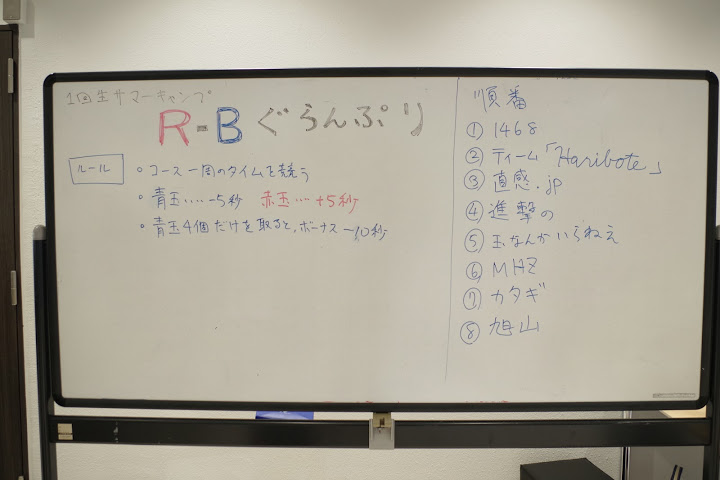 1回生サマーキャンプ
R-B ぐらんぷり
ルール
・コース一周のタイムを競う
・青玉‥‥-5秒 赤玉‥‥+5秒
・青玉4個だけを取ると、ボーナス-10秒
順番
① 1468
② ティーム「Haribote」
③ 直感.jp
④ 進撃の
⑤ 玉なんかいらねえ
⑥ MHZ
⑦ カタギ
⑧ 旭山